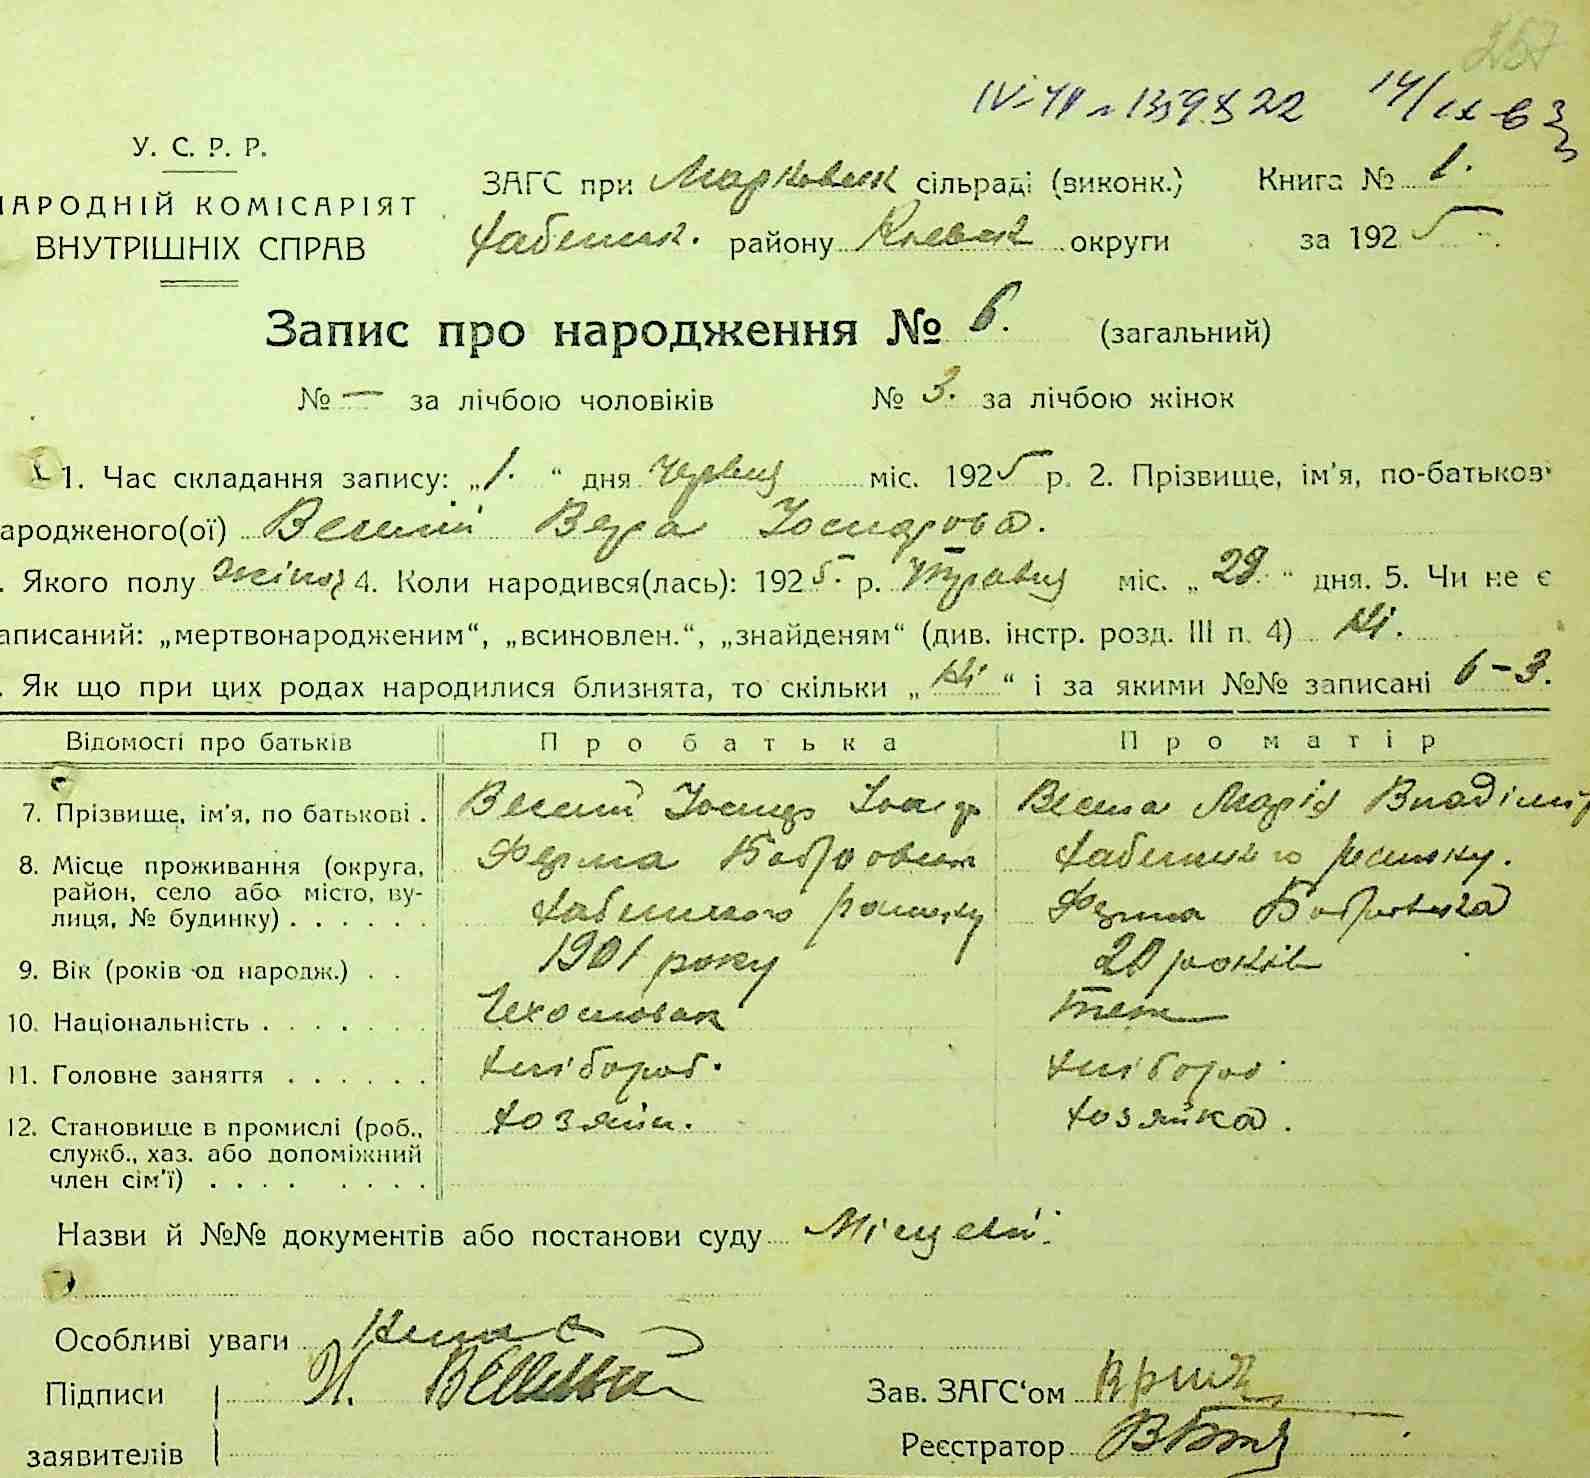 257
14/IX 63
У. С. Р. Р.
НАРОДНІЙ КОМІСАРІЯТ
ВНУТРІШНІХ СПРАВ
ЗАГС при Марковск сільраді (виконк.) Книга № 1.
Хабенск. району Киевск округи за 1925
Запис про народження № 6. (загальний)
№ — за лічбою чоловіків № 3. за лічбою жінок
1. Час складання запису: „1.“ дня червця міс. 1925 р. 2. Прізвище, ім'я, по-батьков
ародженого(ої) Веселий Вера Іосифова.
. Якого полу жіноч 4. Коли народився(лась): 1925. р. Травця міс. „29“ дня. 5. Чи не є
аписаний: „мертвонародженим“, „всиновлен.“, „знайденям“ (див. інстр. розд. III п. 4) Ні.
. Як що при цих родах народилися близнята, то скільки „Ні“ і за якими №№ записані 6-3.
Відомості про батьків Про батька Про матір
7. Прізвище, ім'я, по батькові . Веселий Іосиф Веела Марія Владімір
8. Місце проживання (округа, Ферма Бобровска Хабенского району.
район, село або місто, ву-
лиця, № будинку) . . . . . . Хабенского району Ферма Бобровска
9. Вік (років од народж.) . . 1901 року 20 років
10. Національність . . . . . . . Чехословак Теж
11. Головне заняття . . . . . . Хлібороб. Хлібороб.
12. Становище в промислі (роб., Хозяїн. Хозяйка.
служб., хаз. або допоміжний
член сім'ї) . . . . . . . .
Назви й №№ документів або постанови суду Місцевий.
Особливі уваги Нема
Підписи И. Веселый Зав. ЗАГС'ом
заявителів Реєстратор